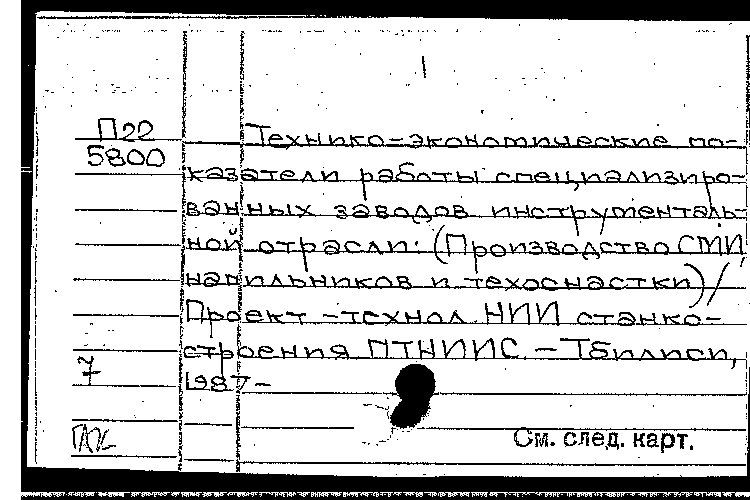 П22
5800
Технико-экономические по-
казатели работы специализиро-
ванных заводов инструменталь-
ной отрасли: (Производство СМИ,
напильников и техоснастки) /
Проект-технол. НИИ станко-
строения ПТНИИС. - Тбилиси,
7
1987-
См. след. карт.